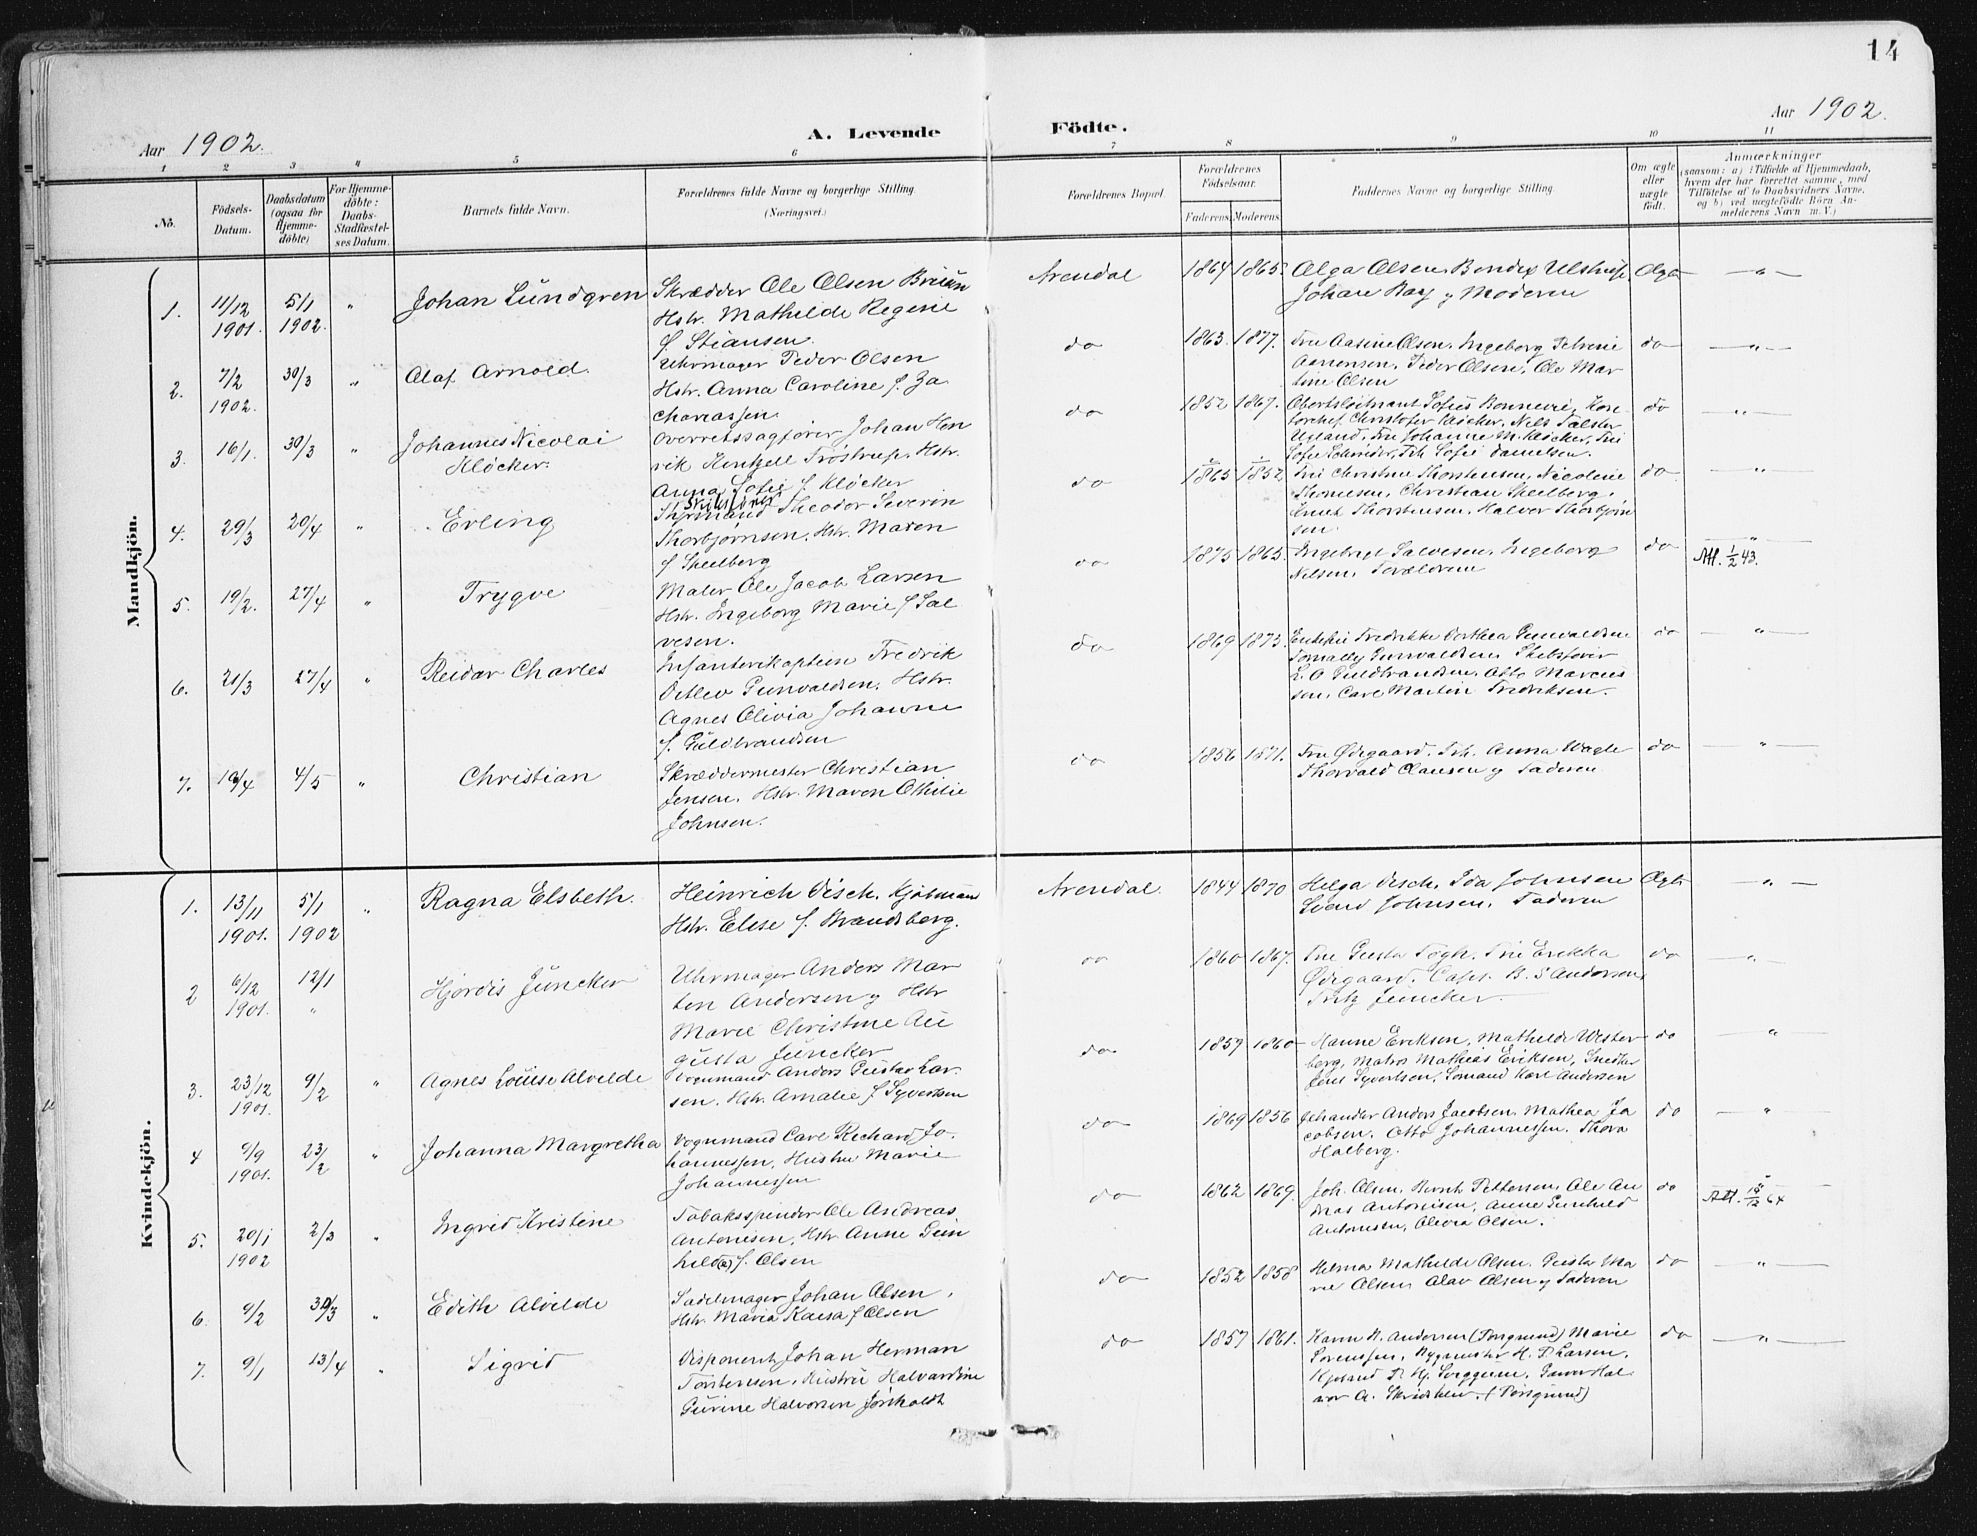 14
Aar 1902.
A. Levende Födte.
Aar 1902.
1 2 3 4 5 6 7 8 9 10 11
No.
Födsels-Datum.
Daabsdatum (ogsaa for Hjemme-döbte)
For Hjemme-döbte: Daabs-Stadfæstelses Datum.
Barnets fulde Navn.
Forældrenes fulde Navne og borgerlige Stilling.
(Næringsvei.)
Forældrenes Bopæl.
Forældrenes Födselsaar.
Faderens Moderens
Faddernes Navne og borgerlige Stilling.
Om ægte eller uægte födt.
Anmærkninger
(saasom: a) i Tilfælde af Hjemmedaab, hvem der har forrettet samme, med Tilföielse af to Daabsvidners Navne, og b) ved uægtefödte Börn Anmelderens Navn m. V.)
Mandkjön.
1. 11/12 1901. 5/1 1902. " Johan Lundgren
Skrædder Ole Olsen
Hstr. Mathilde Regine
f. Stiansen.
Arendal 1864 1865. Olga Olsen,
Johan Bay og Moderen
Ægte — " —
2. 7/2 1902. 30/3 " Olaf Arnold.
Uhrmager Peder Olsen
Hstr. Anna Caroline f. Za
chariassen
do 1863. 1877. Fru Aasine Olsen, Ingeborg
Peder Olsen, Ole Mar
tine Olsen
do — " —
3. 16/1. 30/3 " Johannes Nicolai
Klöcker.
Overretssagfører Johan Hen
rik Frøstrup, Hstr.
Anna Sofie f. Klöcker
do 1852 1867. Oberstløitnant
Christofer Klöcker, Nils
Ugland, Fru Johanne M. Klöcker, Fru
Sofie Schrøder, Frk Sofie Danielsen.
do — " —
4. 29/3 20/4 " Erling
Skibsfører
Styrmand Theodor Severin
Thorbjørnsen, Hstr. Maren
f Skeelberg
do 1865 1852 Fru Christine Thorstensen, Nicoline
Thomesen, Christian Skeelberg,
Thorstensen, Halvor Thorbjørn
sen.
do — " —
5. 19/2. 27/4 " Trygve
Maler Ole Jacob Larsen
Hstr. Ingeborg Marie f Sal
vesen.
do 1875 1865. Ingebrigt Salvesen, Ingeborg
Nilsen, Forældrene
do Att. 1/2 43.
6. 21/3 27/4 " Reidar Charles
Infanterikaptein Fredrik
Ditlev Gunvaldsen, Hstr.
Agnes Olivia Johanne
f. Guldbrandsen
do 1869 1873. Fredrikke Dorthea Gunvaldsen
Gunvaldsen, Skibsfører
L. O Guldbrandsen, Otto Marcus
sen, Carl Martin Fredriksen.
do — " —
7. 19/4 4/5 " Christian
Skræddermester Christian
Jensen, Hstr. Maren Othilie
Johnsen.
do 1856 1871. Fru Ødegaard, Frk. Anna Wagle
Thorvald Clausen og Faderen
do — " —
Kvindekjön.
1. 13/11 1901. 5/1 1902 " Ragna Elsbeth.
Heinrich Disch, Kjøbmand
Hstr. Elise f. Brandsberg.
Arendal. 1844 1870 Helga Disch, Ida Johnsen
Svend Johnsen, Faderen
Ægte — " —
2 6/12 1901. 12/1 " Hjørdis Juncker
Uhrmager Anders Mar
ten Andersen og Hstr
Marie Christine Au
gusta Juncker
do 1860 1867. Fru Gusta Fogh, Fru Erikka
Ødegaard, Capt. B. S Andersen
Fritz Juncker.
do — " —
3. 23/12 1901. 9/2 " Agnes Louise Alvilde
Vognmand Anders Gustav Lar
sen, Hstr. Amalie f Syvertsen
do 1859 1860 Hanne Eriksen, Mathilde Wester
berg, Matros Mathias Eriksen, Snedker
Jens Syvertsen, Sömand Karl Andersen
do — " —
4 9/9 1901. 23/2 " Johanna Margretha
Vognmand Carl Richard Jo
hannessen, Hustru Marie
Johannessen
do 1869 1856 Anders Jacobsen, Mathea Ja
cobsen, Otto Johannessen, Thora
Halberg.
do — " —
5. 20/1 1902 2/3 " Ingrid Kristine
Tobaksspinder Ole Andreas
Antonisen, Hstr. Anne Gun
hild(a) f. Olsen
do 1862 1869. Joh. Olsen, Bernt Pettersen, Ole An
dreas Antonisen, Anne Gunhild
Antonisen, Olivia Olsen.
do Att. 18/12 64
6. 9/2 30/3 " Edith Alvilde
Sadelmager Johan Olsen,
Hstr. Maria Kaisa f Olsen
do 1852 1858 Helma Mathilde Olsen, Gusta Ma
rie Olsen, Olav Olsen og Faderen
do — " —
7. 9/1 13/4 " Sigrid
Disponent Johan Herman
Torstensen, Hustru Halvardine
Gurine Halvorsen
do 1857 1861. Karen N. Andersen (Porsgrund) Marie
Sørenssen, Bygmester H. P. Larsen,
(Porsgrund)
do — " —